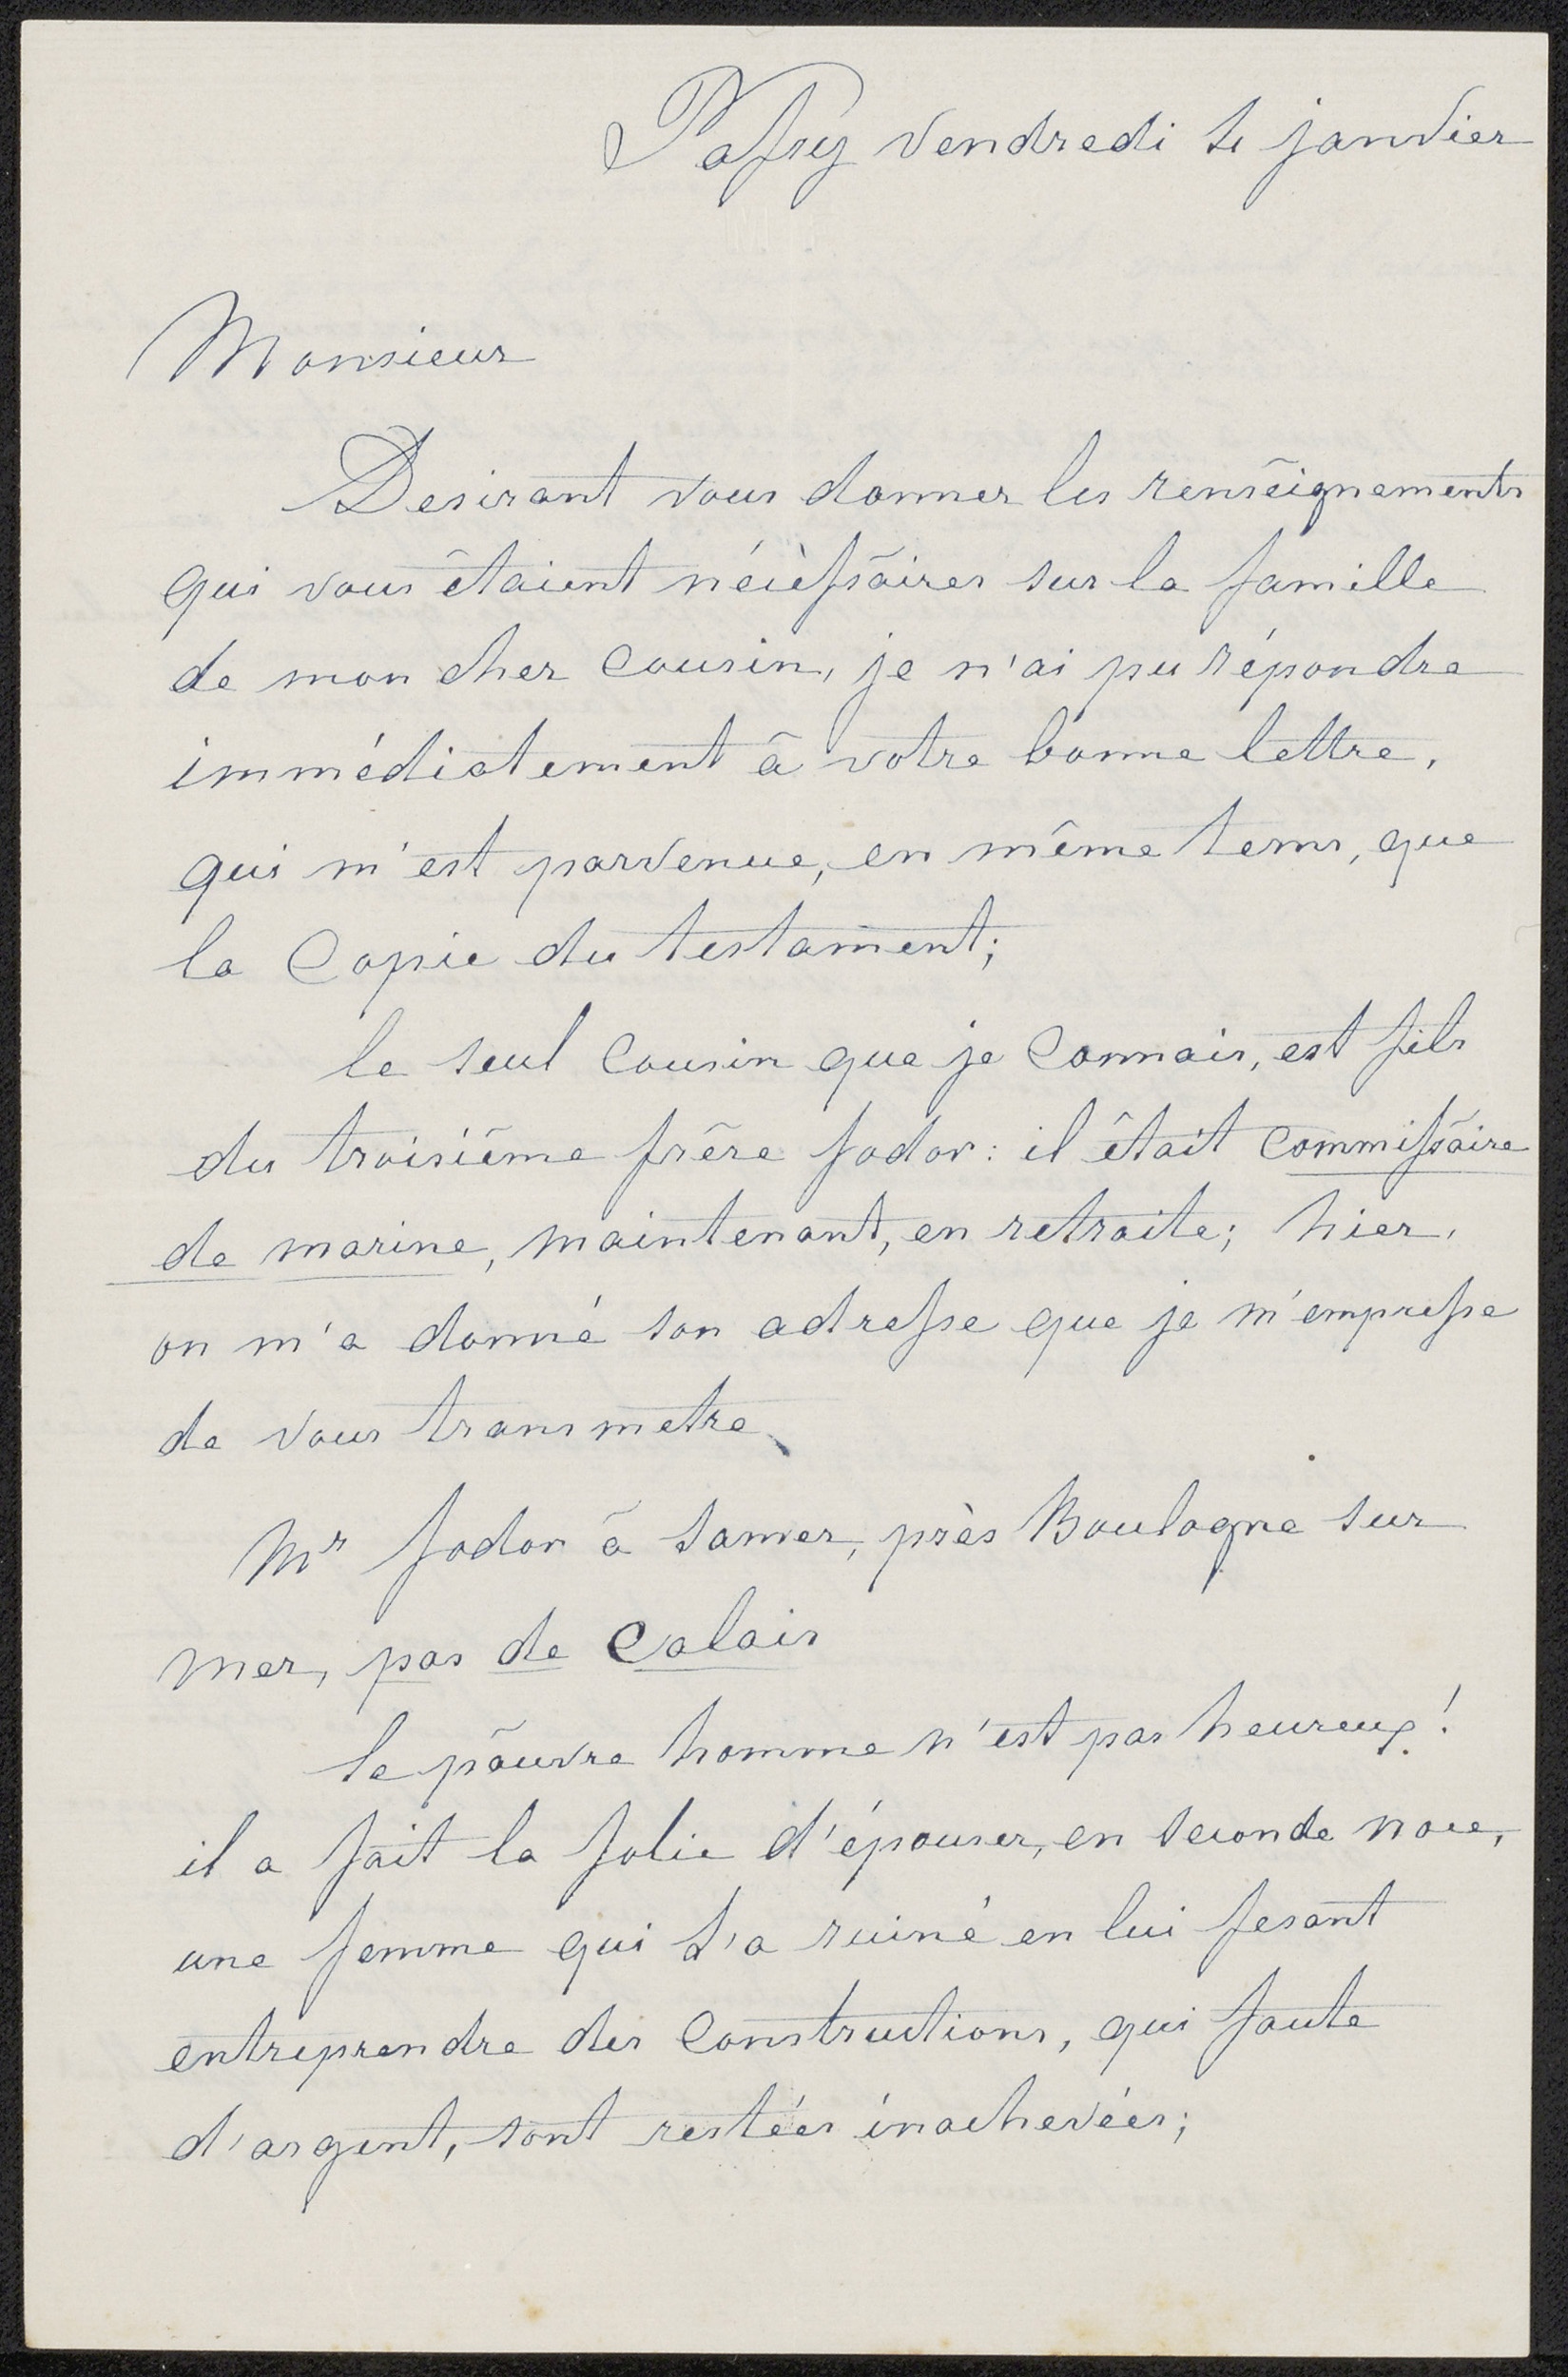 Passy vendredi 4 janvier
Monsieur
Desirant vous donner les renséignements
qui vous êtaient nécèssâires sur la famille
de mon cher Cousin, je n'ai pu répondre
immédiatement â votre bonne lettre,
qui m'est parvenue, en même tems, que
la Copie du testament;
le seul Cousin que je Connais, est fils
du troisiême frêre fodor: il êtait Commissâire
de marine, maintenant, en retraite; hier,
on m'a donné son adresse que je m'empresse
de vous transmetre,
Mr fodor â Samer, près Boulogne sur
mer, pas de Calais
le pâuvre homme n'est pas heureux!
il a fait la folie d'épouser, en seconde noce,
une femme qui l'a ruiné en lui fesant
entreprendre des Constructions, qui faute
d'argent, sont restées inachevées;